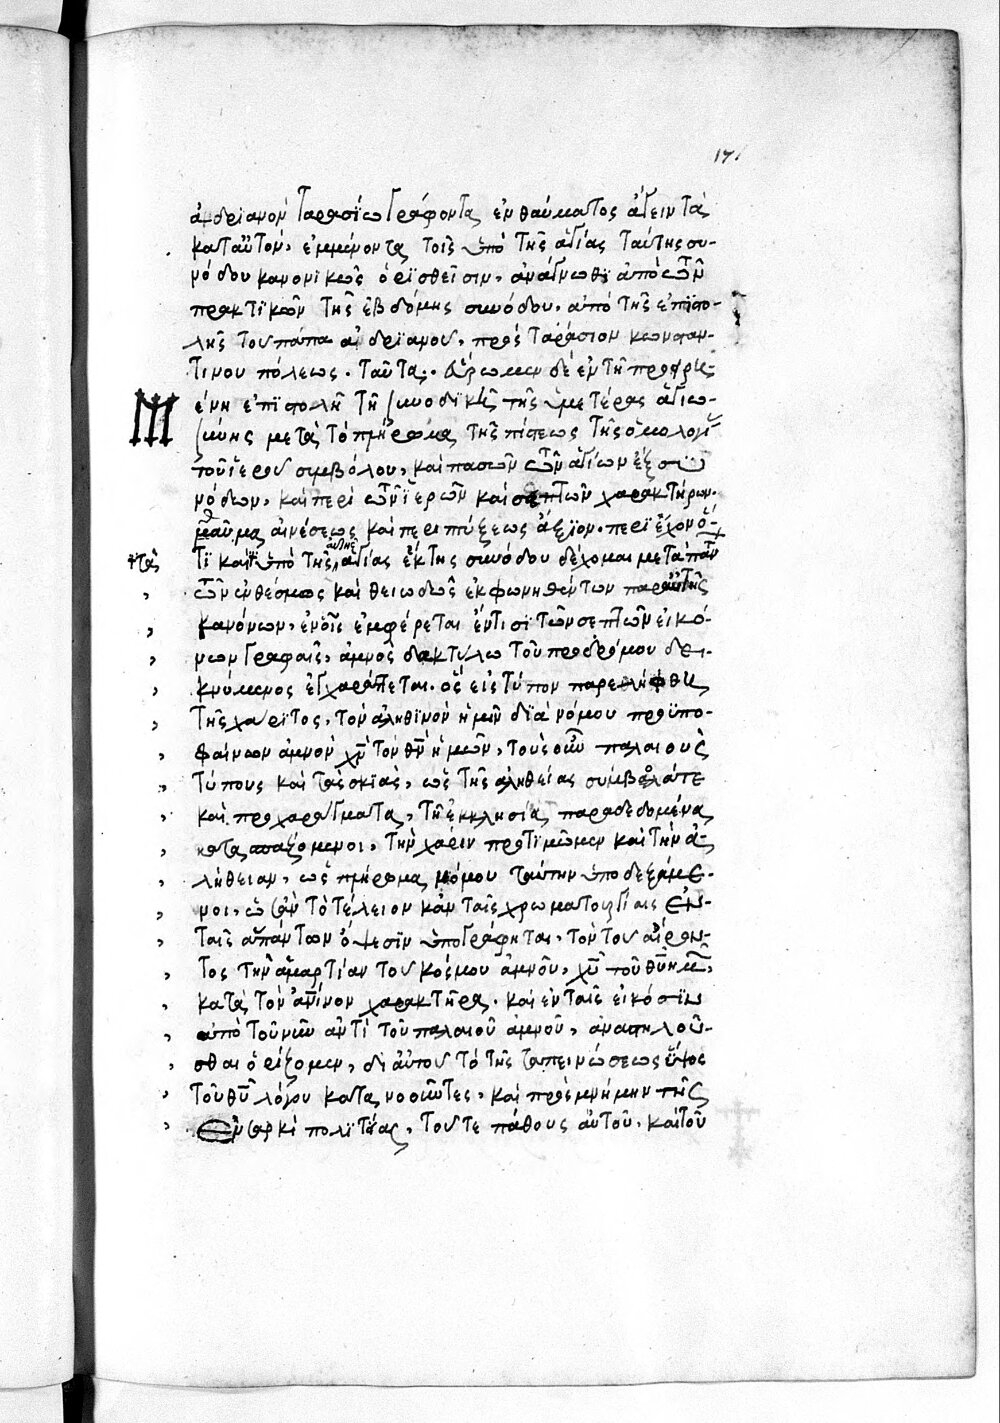 17
ἀνδριανὸν ταρασίω γράφοντα, ἐν θαύματος ἄγειν τὰ
κατ αὐτὸν, ἐμμένοντα τοῖς ὑπὸ τῆς ἁγίας ταύτης συ-
νόδου κανονικῶς ὁρϊσθεῖσιν, ἀνάγνωθι ἀπὸ τῶν
πρακτϊκῶν τῆς ἑβδόμης συνόδου, ἀπὸ τῆς ἐπιστο-
λῆς τοῦ πάπα ἀνδρϊανοῦ, πρὸς ταράσιον κωνσταν-
τινου πόλεως. ταῦτα.
ἐπιστολῆ τῆ συνοδικῆ τῆς ὑμετέρας ἁγιω-
σύνης μετὰ τὸ πλήρωμα τῆς πίστεως τῆς ὁμολογί
τοῦ ἱεροῦ συμβόλου, καὶ πασῶν τῶν ἁγίων ἓξ συ
νόδων, καὶ περὶ τῶν ἱερῶν καὶ σεπτῶν χαρακτήρων.
θαῦμα αἰνέσεως καὶ περιπτύξεως ἄξϊον. περϊέχον ὅ-
τϊ καὶ τὰ ὑπὸ τῆς αὐτῆς ἁγίας ἕκτης συνόδου δέχομαι μετὰ πάντων
τῶν ἐνθέσμως καὶ θειωδῶς ἐκφωνηθέντων παρ αὐτῆς
κανόνων, ἐν οἷς ἐμφέρεται ἔν τισϊ τῶν σεπτῶν εἰκό-
νων γραφαῖς, ἀμνὸς δακτύλω τοῦ προδρόμου δει-
κνύμενος ἐγχαράττεται. ὃς εἰς τύπον παρελήφθη
τῆς χάρϊτος, τὸν ἀληθϊνὸν ἡμῖν δϊὰ νόμου προϋπο-
φαίνων ἀμνὸν χν τὸν θν ἡμῶν, τοὺς οὖν παλαιοὺς
τύπους καὶ τὰς σκϊὰς, ὡς τῆς ἀληθείας σύμβολά τε
καὶ προχαράγματα, τῆ ἐκκλησία παραδεδομένα
κατασπαζόμενοι, τὴν χάριν προτϊμῶμεν καὶ τὴν ἀ-
λήθειαν, ὡς πλήρωμα νόμου ταύτην ὑποδεξάμε-
νοι, ὡς ἂν τὸ τέλειον κἂν ταῖς χρωματουργίαις ἐν
ταῖς ἁπάντων ὄψεσϊν ὑπογράφηται, τὸν τοῦ αἴρον-
τος τὴν ἁμαρτίαν τοῦ κόσμου ἀμνοῦ, χυ τοῦ θυ ἡμῶν,
κατὰ τὸν ἀνϊνον χαρακτῆρα. καὶ ἐν ταῖς εἰκόσϊν
ἀπὸ τοῦ νῦν ἀντὶ τοῦ παλαιοῦ ἀμνοῦ, ἀναστηλοῦ-
σθαι ὁρίζομεν, δι αὐτοῦ τὸ τῆς ταπεινώσεως ὕψος
τοῦ θυ λόγου κατανοοῦντες, καὶ πρὸς μνήμην τῆς
ἐν σαρκὶ πολϊτείας, τοῦ τε πάθους αὐτοῦ, καὶ τοῦ